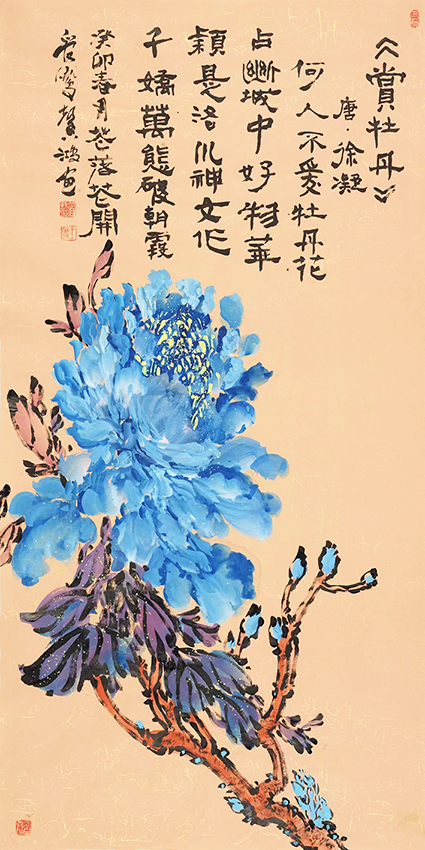 《賞牡丹》
唐·徐凝
何人不愛牡丹花
占斷城中好物華
疑是洛川神女化
千嬌萬態破朝霞
癸卯春月花落花開
鴻畫